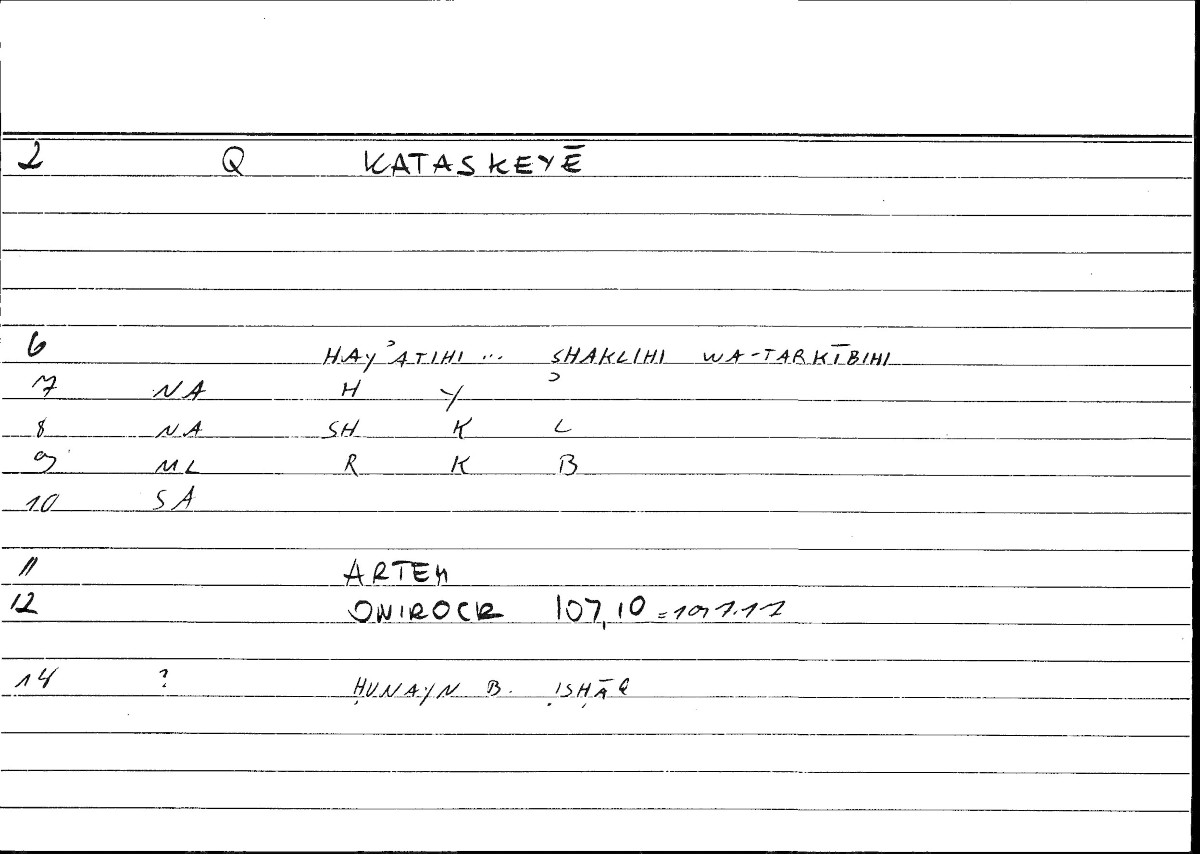 2 Q KATASKEYĒ
6 HAYʾATIHI ... SHAKLIHI WA-TARKĪBIHI
7 NA H Y ʾ
8 NA SH K L
9 ML R K B
10 SA
11 ARTEM
12 ONIROCR 107,10 =
14 ? ḤUNAYN B. ISḤĀQ